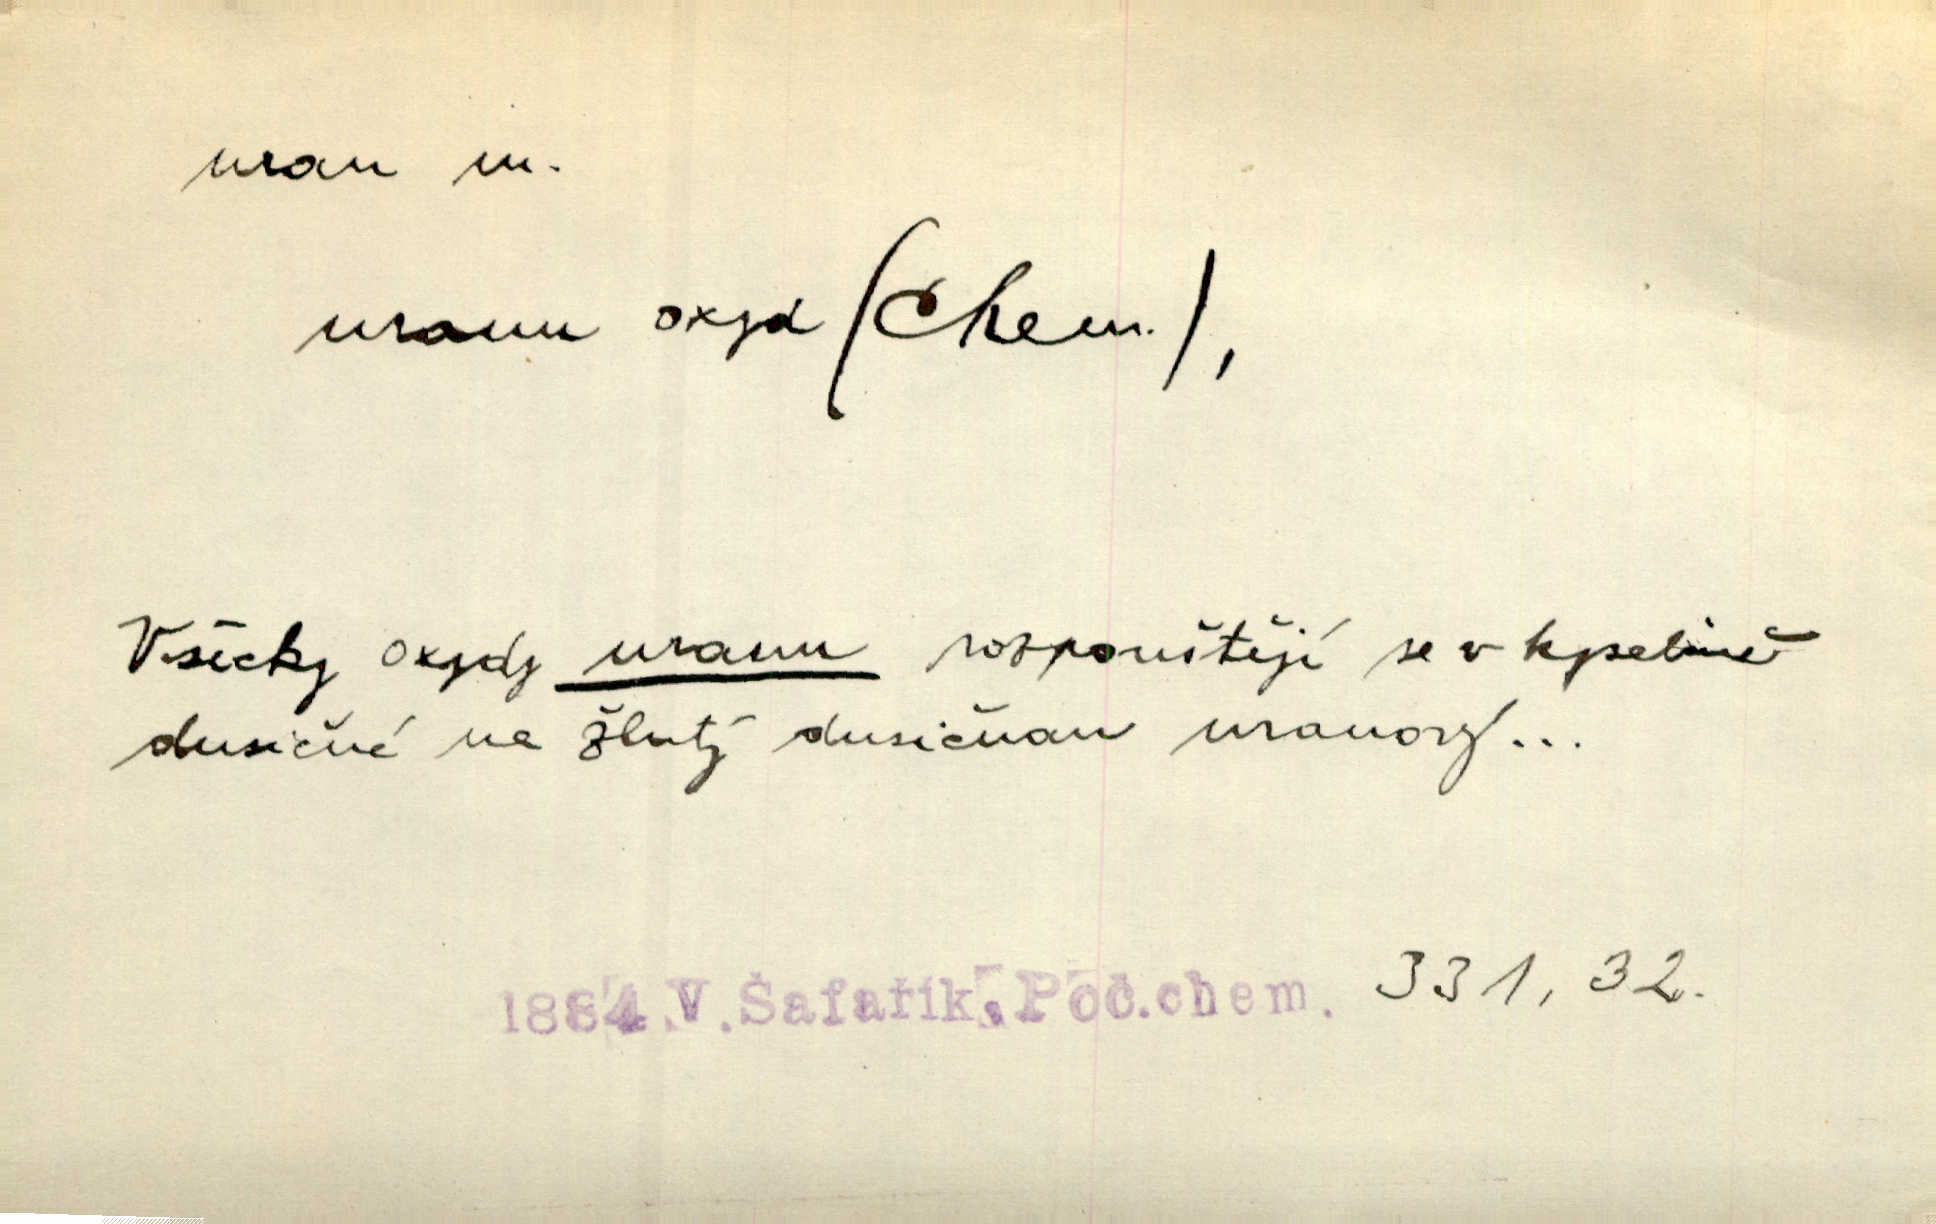 uran m.
uranu oxyd (Chem.),
Všecky oxydy uranu rozpouštějí se v kyselině
dusičné na žlutý dusičnan uranový...
1884 V. Šafařík. Poč. chem. 331, 32.